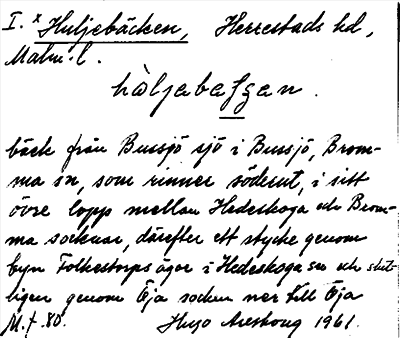 I. x Huljebäcken, Herrestads hd,
Malm. l.
hòljabaʃʒan.
bäck från Bussjö sjö i Bussjö, Brom-
ma sn, som rinner söderut, i sitt
övre lopp mellan Hedeskoga och Brom-
ma socknar, därefter ett stycke genom
byn Folkestorps ägor i Hedeskoga sn och slut-
ligen genom Öja socken ner till Öja
M. f. 80. Hugo Areskoug 1961.